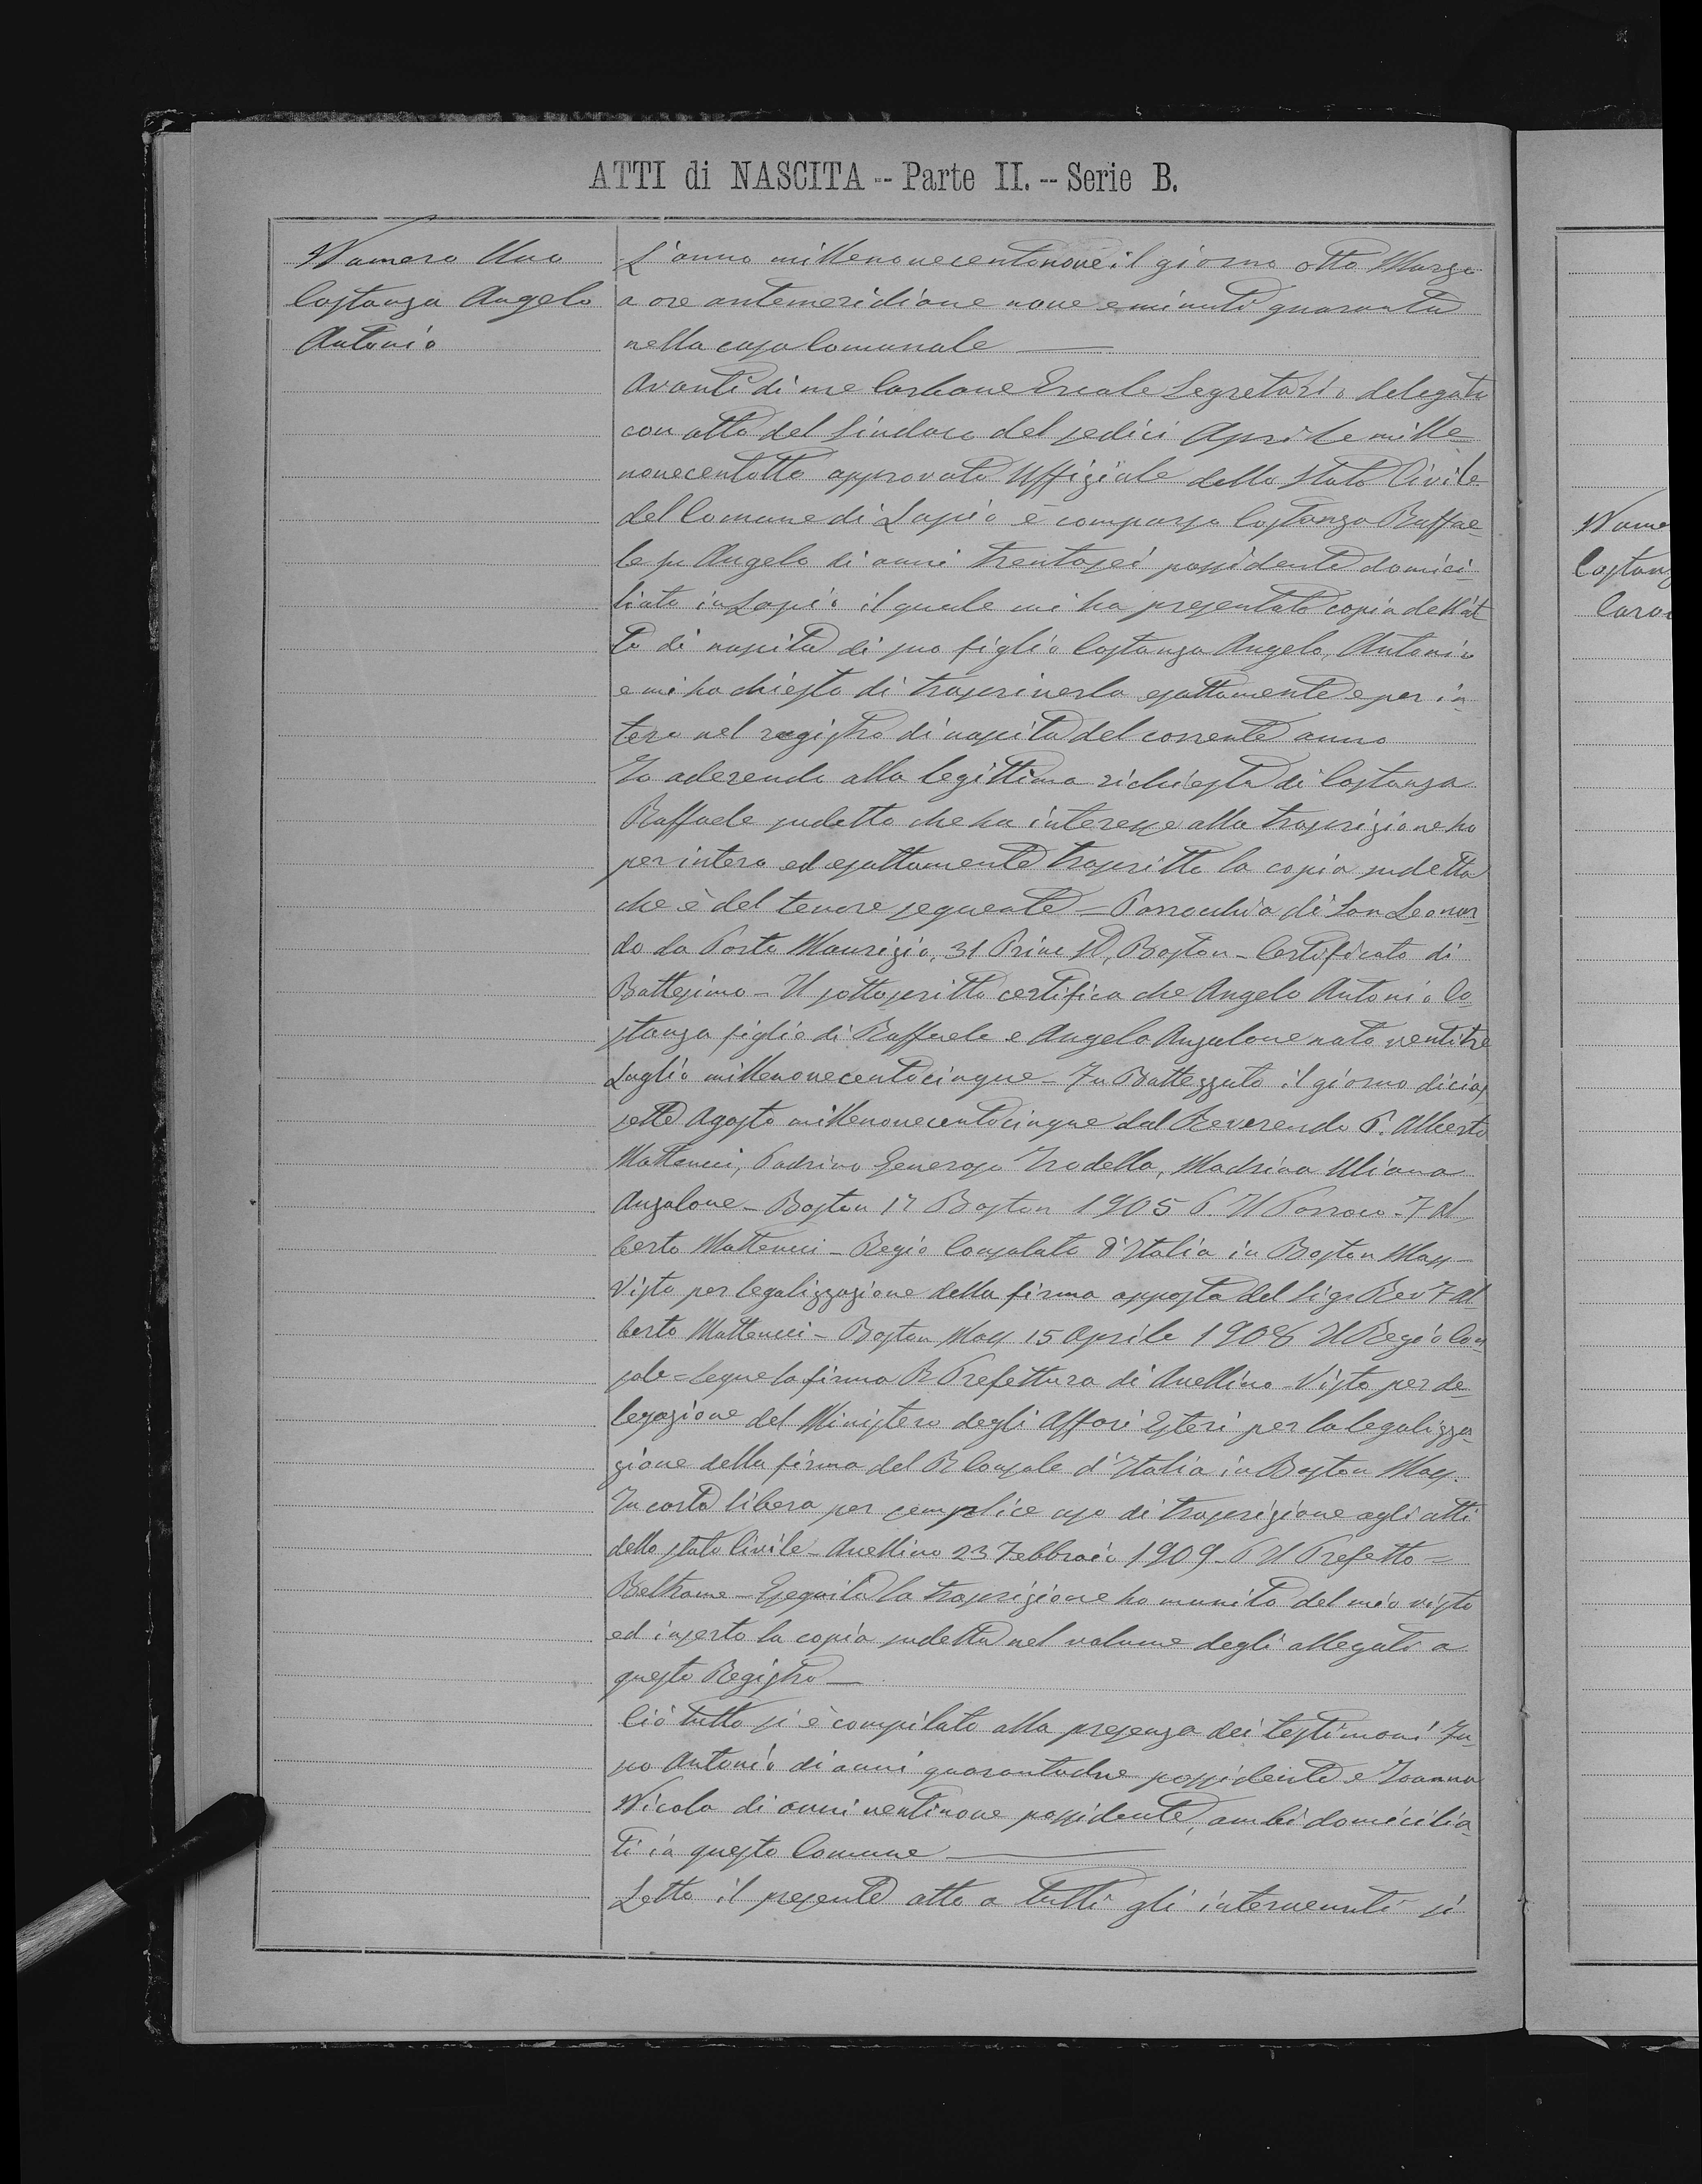 ATTI di NASCITA -- Parte II. -- Serie B.
Numero Uno
Costanza Angelo
Antonio
L'anno millenovecentonove il giorno otto Marzo
a ore antemeridiane nove e minuti quaranta
nella casa Comunale
Avanti di me Carbone Ercole Segretario delegato
con atto del Sindaco del sedici Aprile mille
novecentotto approvato Uffiziale dello Stato Civile
del Comune di Lapio è comparso Costanza Raffae-
le fu Angelo di anni trentasei possidente domici-
liato in Lapio il quale mi ha presentato copia dell'at
to di nascita di suo figlio Costanza Angelo, Antonio
e mi ha chiesto di trascriverla esattamente e per in-
tero nel registro di nascita del corrente anno
Io aderendo alla legittima richiesta di Costanza
Raffaele sudetto che ha interesse alla trascrizione ho
per intero ed esattamente trascritto la copia sudetta
che è del tenore seguente = Parrocchia di San Leonar-
do da Porto Maurizio, 31 Prince St, Boston - Certificato di
Battesimo - Il sottoscritto certifica che Angelo Antonio Co-
stanza figlio di Raffaele e Angela Anzalone nato ventitre
Luglio millenovecentocinque - Fu Battezzato il giorno dicias
sette Agosto millenovecentocinque dal Reverendo P. Alberto
Matteucci, Padrino Generoso Trodella, Madrina
Anzalone - Boston 17 Boston 1905 P. Il Parroco - F Al
berto Matteucci - Regio Consolato d'Italia in Boston Mass -
Visto per legalizzazione della firma apposta del Sigr Rev F Al
berto Matteucci - Boston Mass 15 Aprile 1908 Il Regio Con-
sole = Segue la firma R Prefettura di Avellino - Visto per de-
legazione del Ministero degli Affari Esteri per la legalizza-
zione della firma del R Console d'Italia in Boston Mass.
In carta libera per semplice uso di trascrizione agli atti
dello stato Civile - Avellino 23 Febbraio 1909 - P Il Prefetto =
Beltrame - Eseguita la trascrizione ho munito del mio visto
ed inserto la copia sudetta nel volume degli allegati a
questo Registro -
Ciò tutto si è compilato alla presenza dei testimoni
Antonio di anni quarantadue possidente e Ioanna
Nicola di anni ventinove possidente, ambi domicilia-
ti in questo Comune
Letto il presente atto a tutti gli intervenuti si
Nume
Costanz